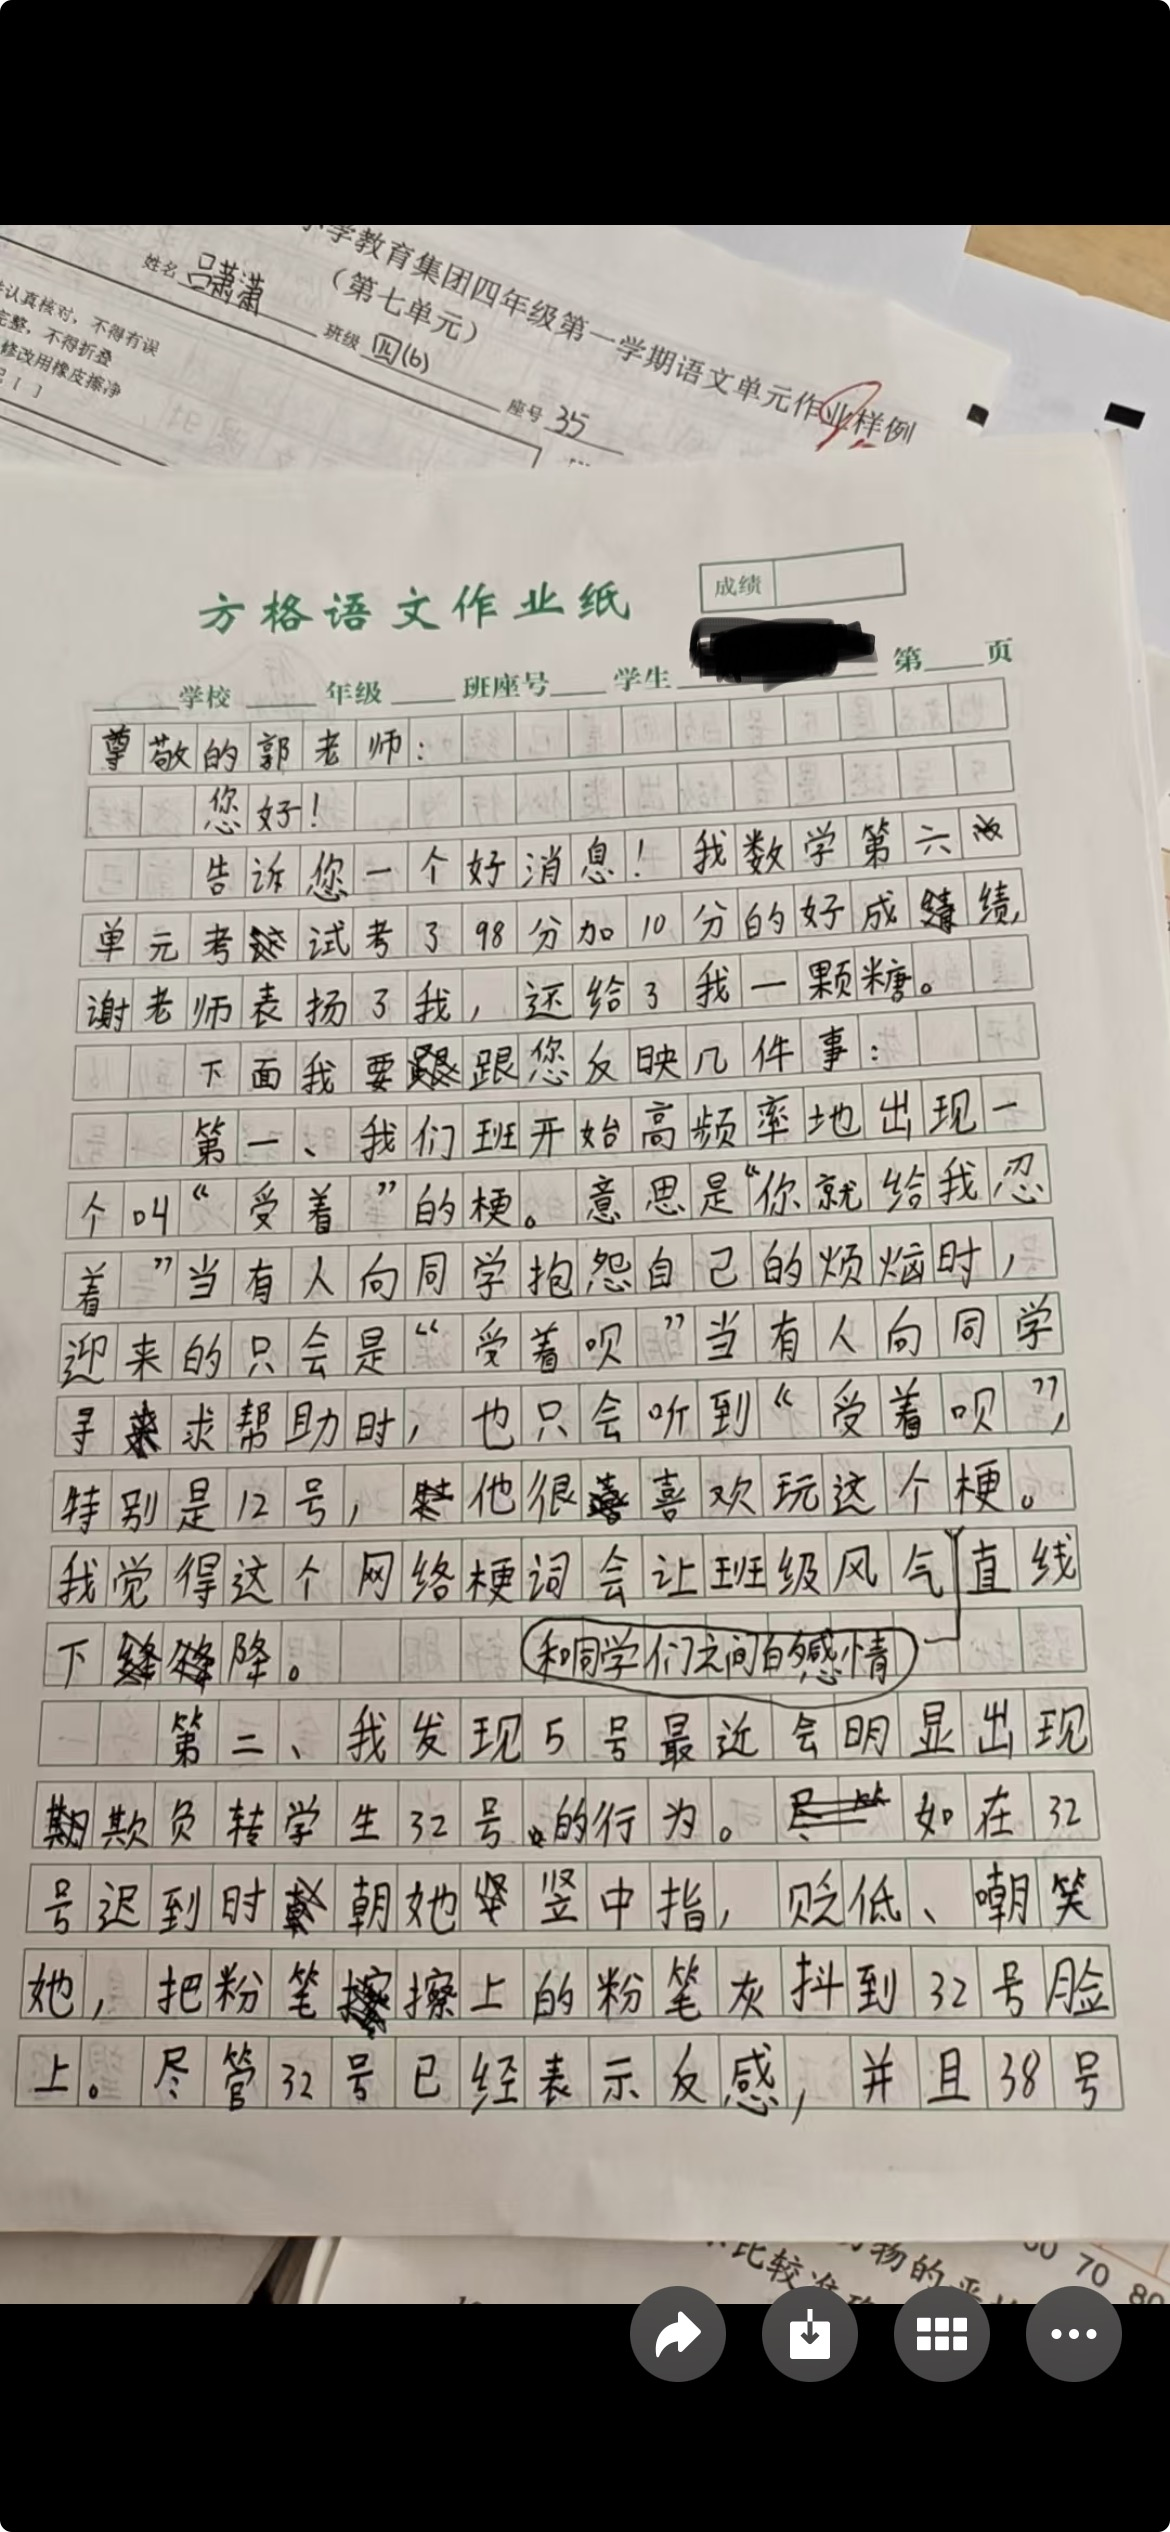 小学教育集团四年级第一学期语文单元作业样例
（第七单元）
姓名 吕潇潇 班级 四(6) 座号 35
认真核对，不得有误
完整，不得折叠
修改用橡皮擦净
成绩
方格语文作业纸
学校 年级 班座号 学生 第 页
尊敬的郭老师：
您好！
告诉您一个好消息！我数学第六
单元考试考了98分加10分的好成绩，
谢老师表扬了我，还给了我一颗糖。
下面我要跟您反映几件事：
第一、我们班开始高频率地出现一
个叫“受着”的梗。意思是“你就给我忍
着”当有人向同学抱怨自己的烦恼时，
迎来的只会是“受着呗”当有人向同学
寻求帮助时，也只会听到“受着呗”，
特别是12号，他很喜欢玩这个梗。
我觉得这个网络梗词会让班级风气直线
下降。 和同学们之间的感情
第二、我发现5号最近会明显出现
欺负转学生32号的行为。如在32
号迟到时朝她竖中指，贬低、嘲笑
她，把粉笔擦上的粉笔灰抖到32号脸
上。尽管32号已经表示反感，并且38号
比较准确
物的
60 70 80